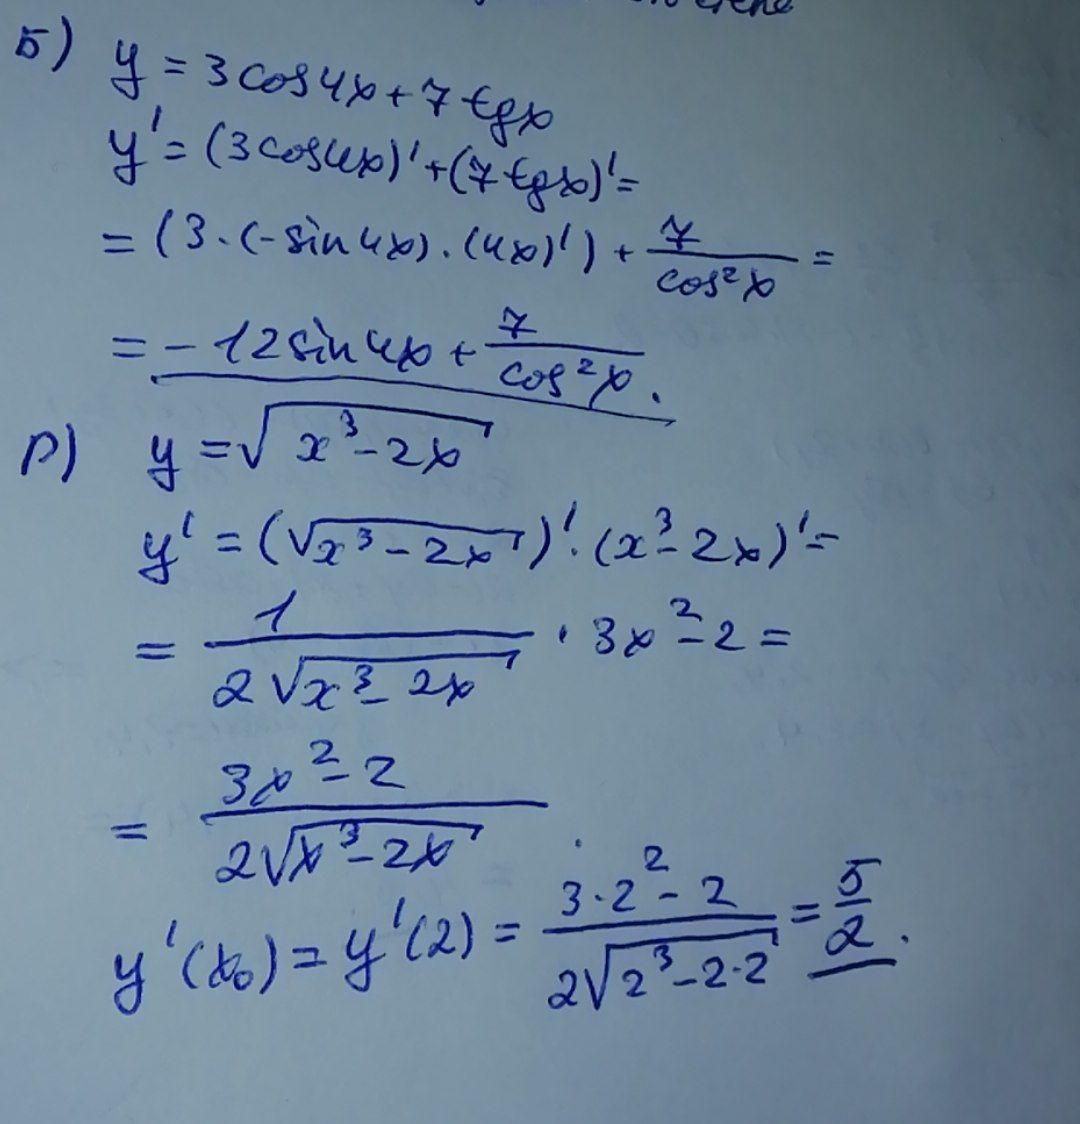 б) y = 3 cos 4x + 7 tg x
y' = (3 cos 4x)' + (7 tg x)' =
= (3 · (- sin 4x) · (4x)') + 7/cos²x =
= - 12 sin 4x + 7/cos²x.
y = √(x³ - 2x)
y' = (√(x³ - 2x))' · (x³ - 2x)' =
= 1/(2√(x³ - 2x)) · 3x² - 2 =
= (3x² - 2)/(2√(x³ - 2x))
y'(x₀) = y'(2) = (3·2² - 2)/(2√(2³ - 2·2)) = 5/2.